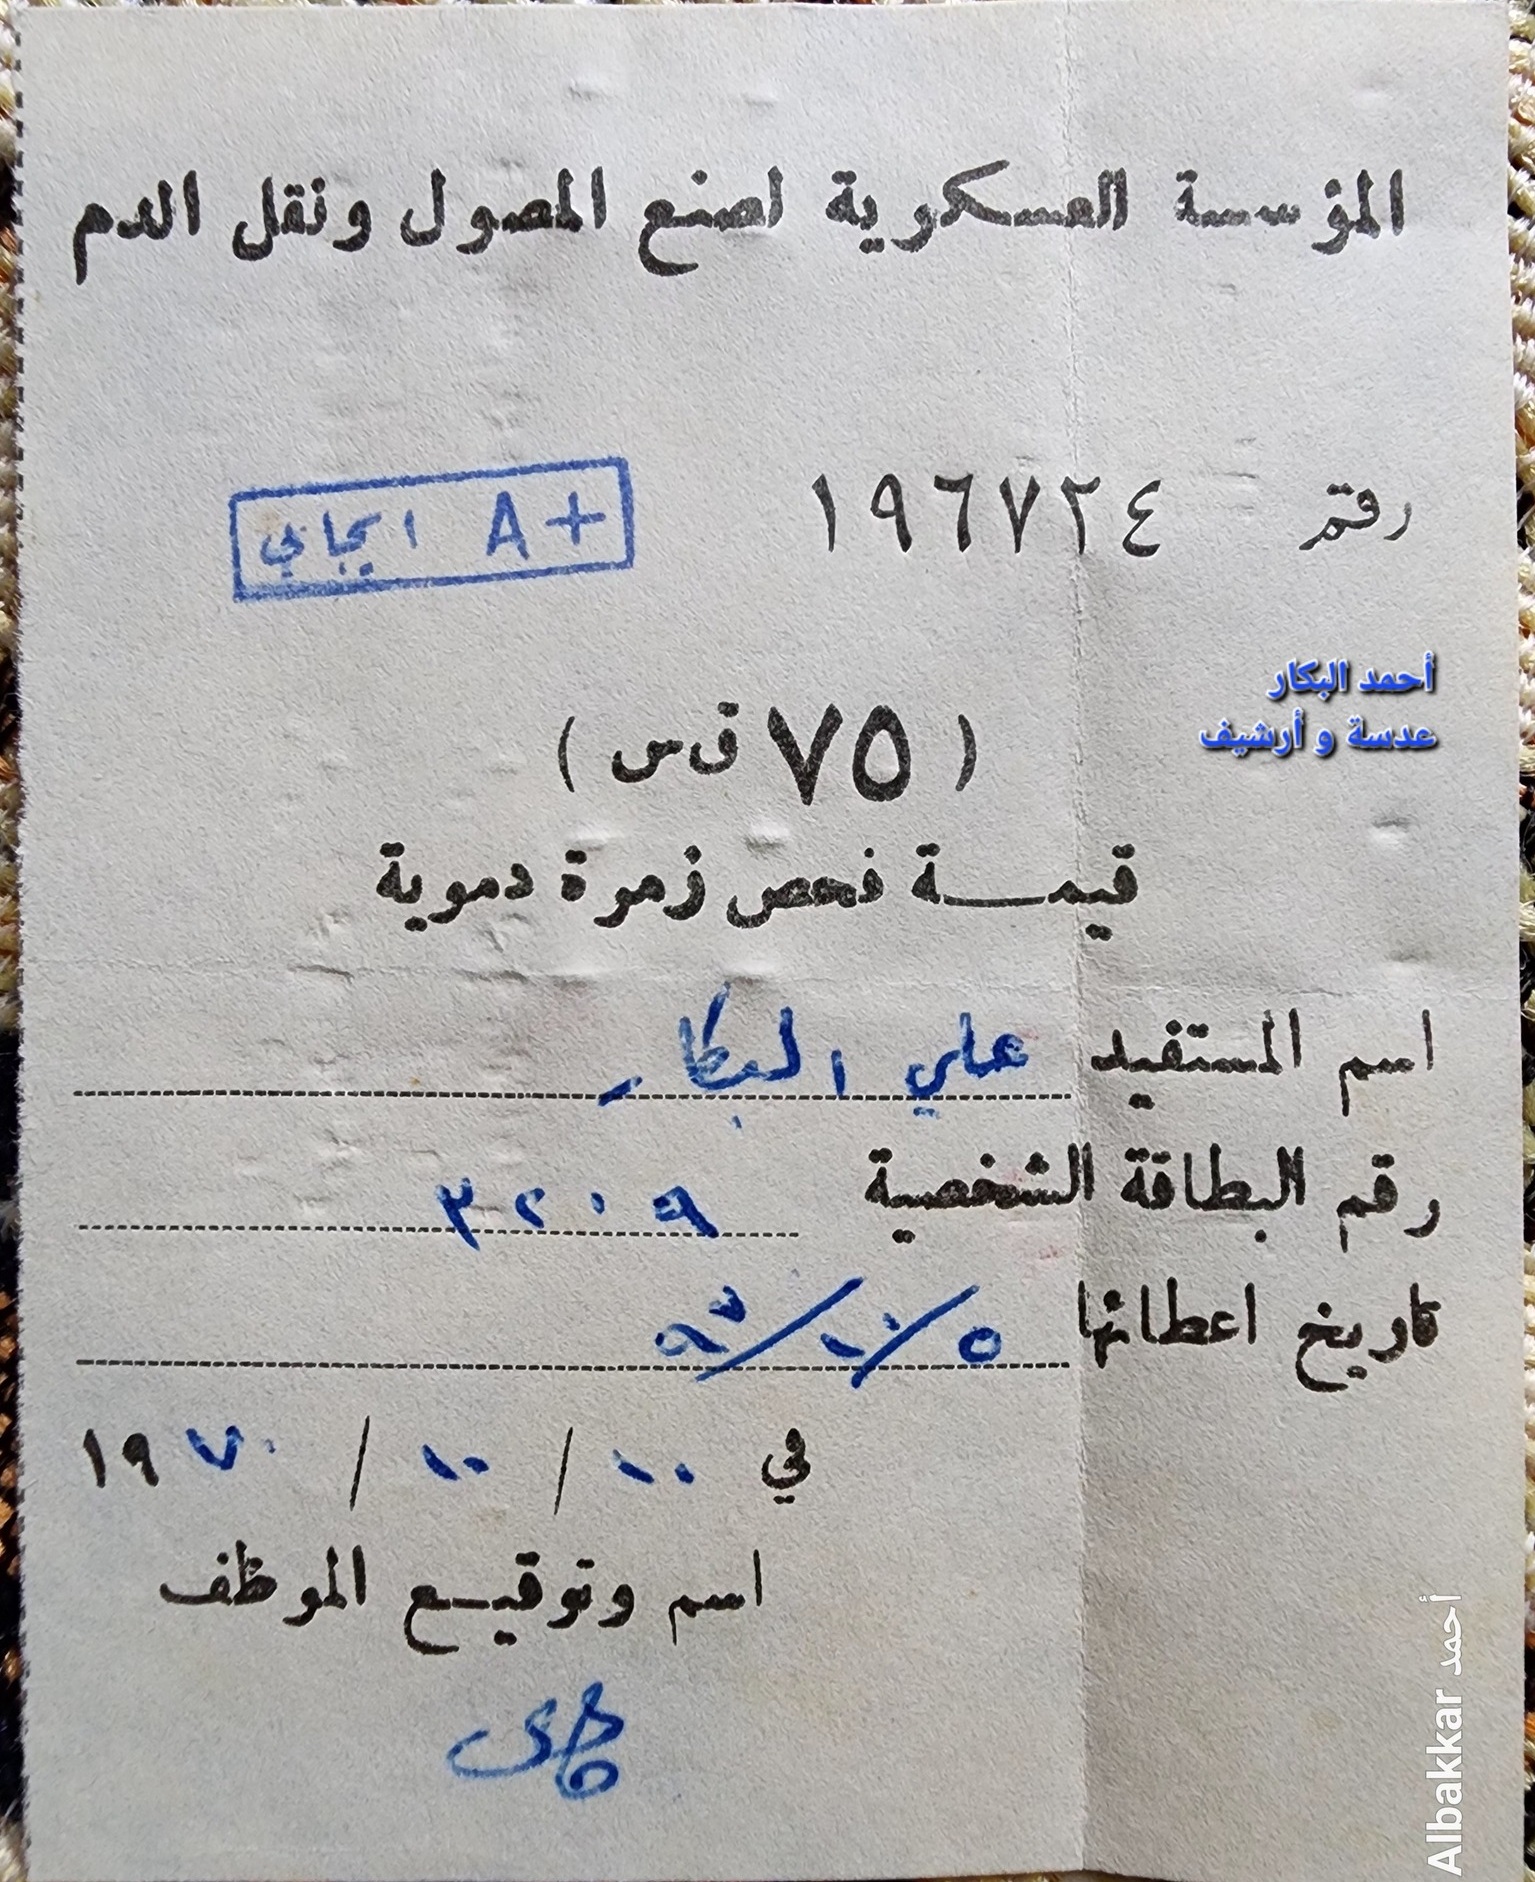 المؤسسة العسكرية لصنع المصول ونقل الدم
رقم ١٩٦٧٢٤
A+ ايجابي
أحمد البكار
عدسة و أرشيف
( ٧٥ ق س )
قيمة فحص زمرة دموية
اسم المستفيد علي البكار
رقم البطاقة الشخصية ٣٢٠٩
تاريخ اعطائها ٥/١٠/
في ١٠ / ١٠ / ١٩٧٠
اسم وتوقيع الموظف
Albakkar أحمد